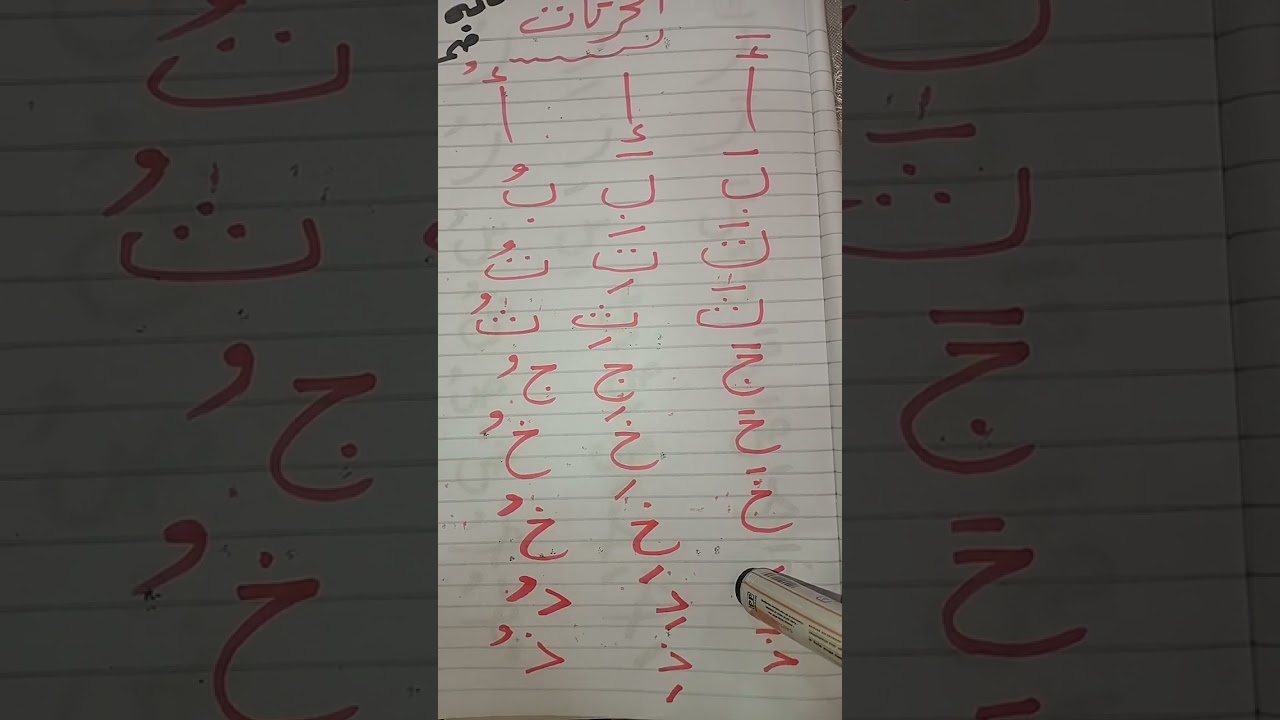 الحركات
أَ إِ أُ
بَ بِ بُ
تَ تِ تُ
ثَ ثِ ثُ
جَ جِ جُ
حَ خِ خُ
خَ خِ خُ
دِ دُ
ذَ ذِ ذُ